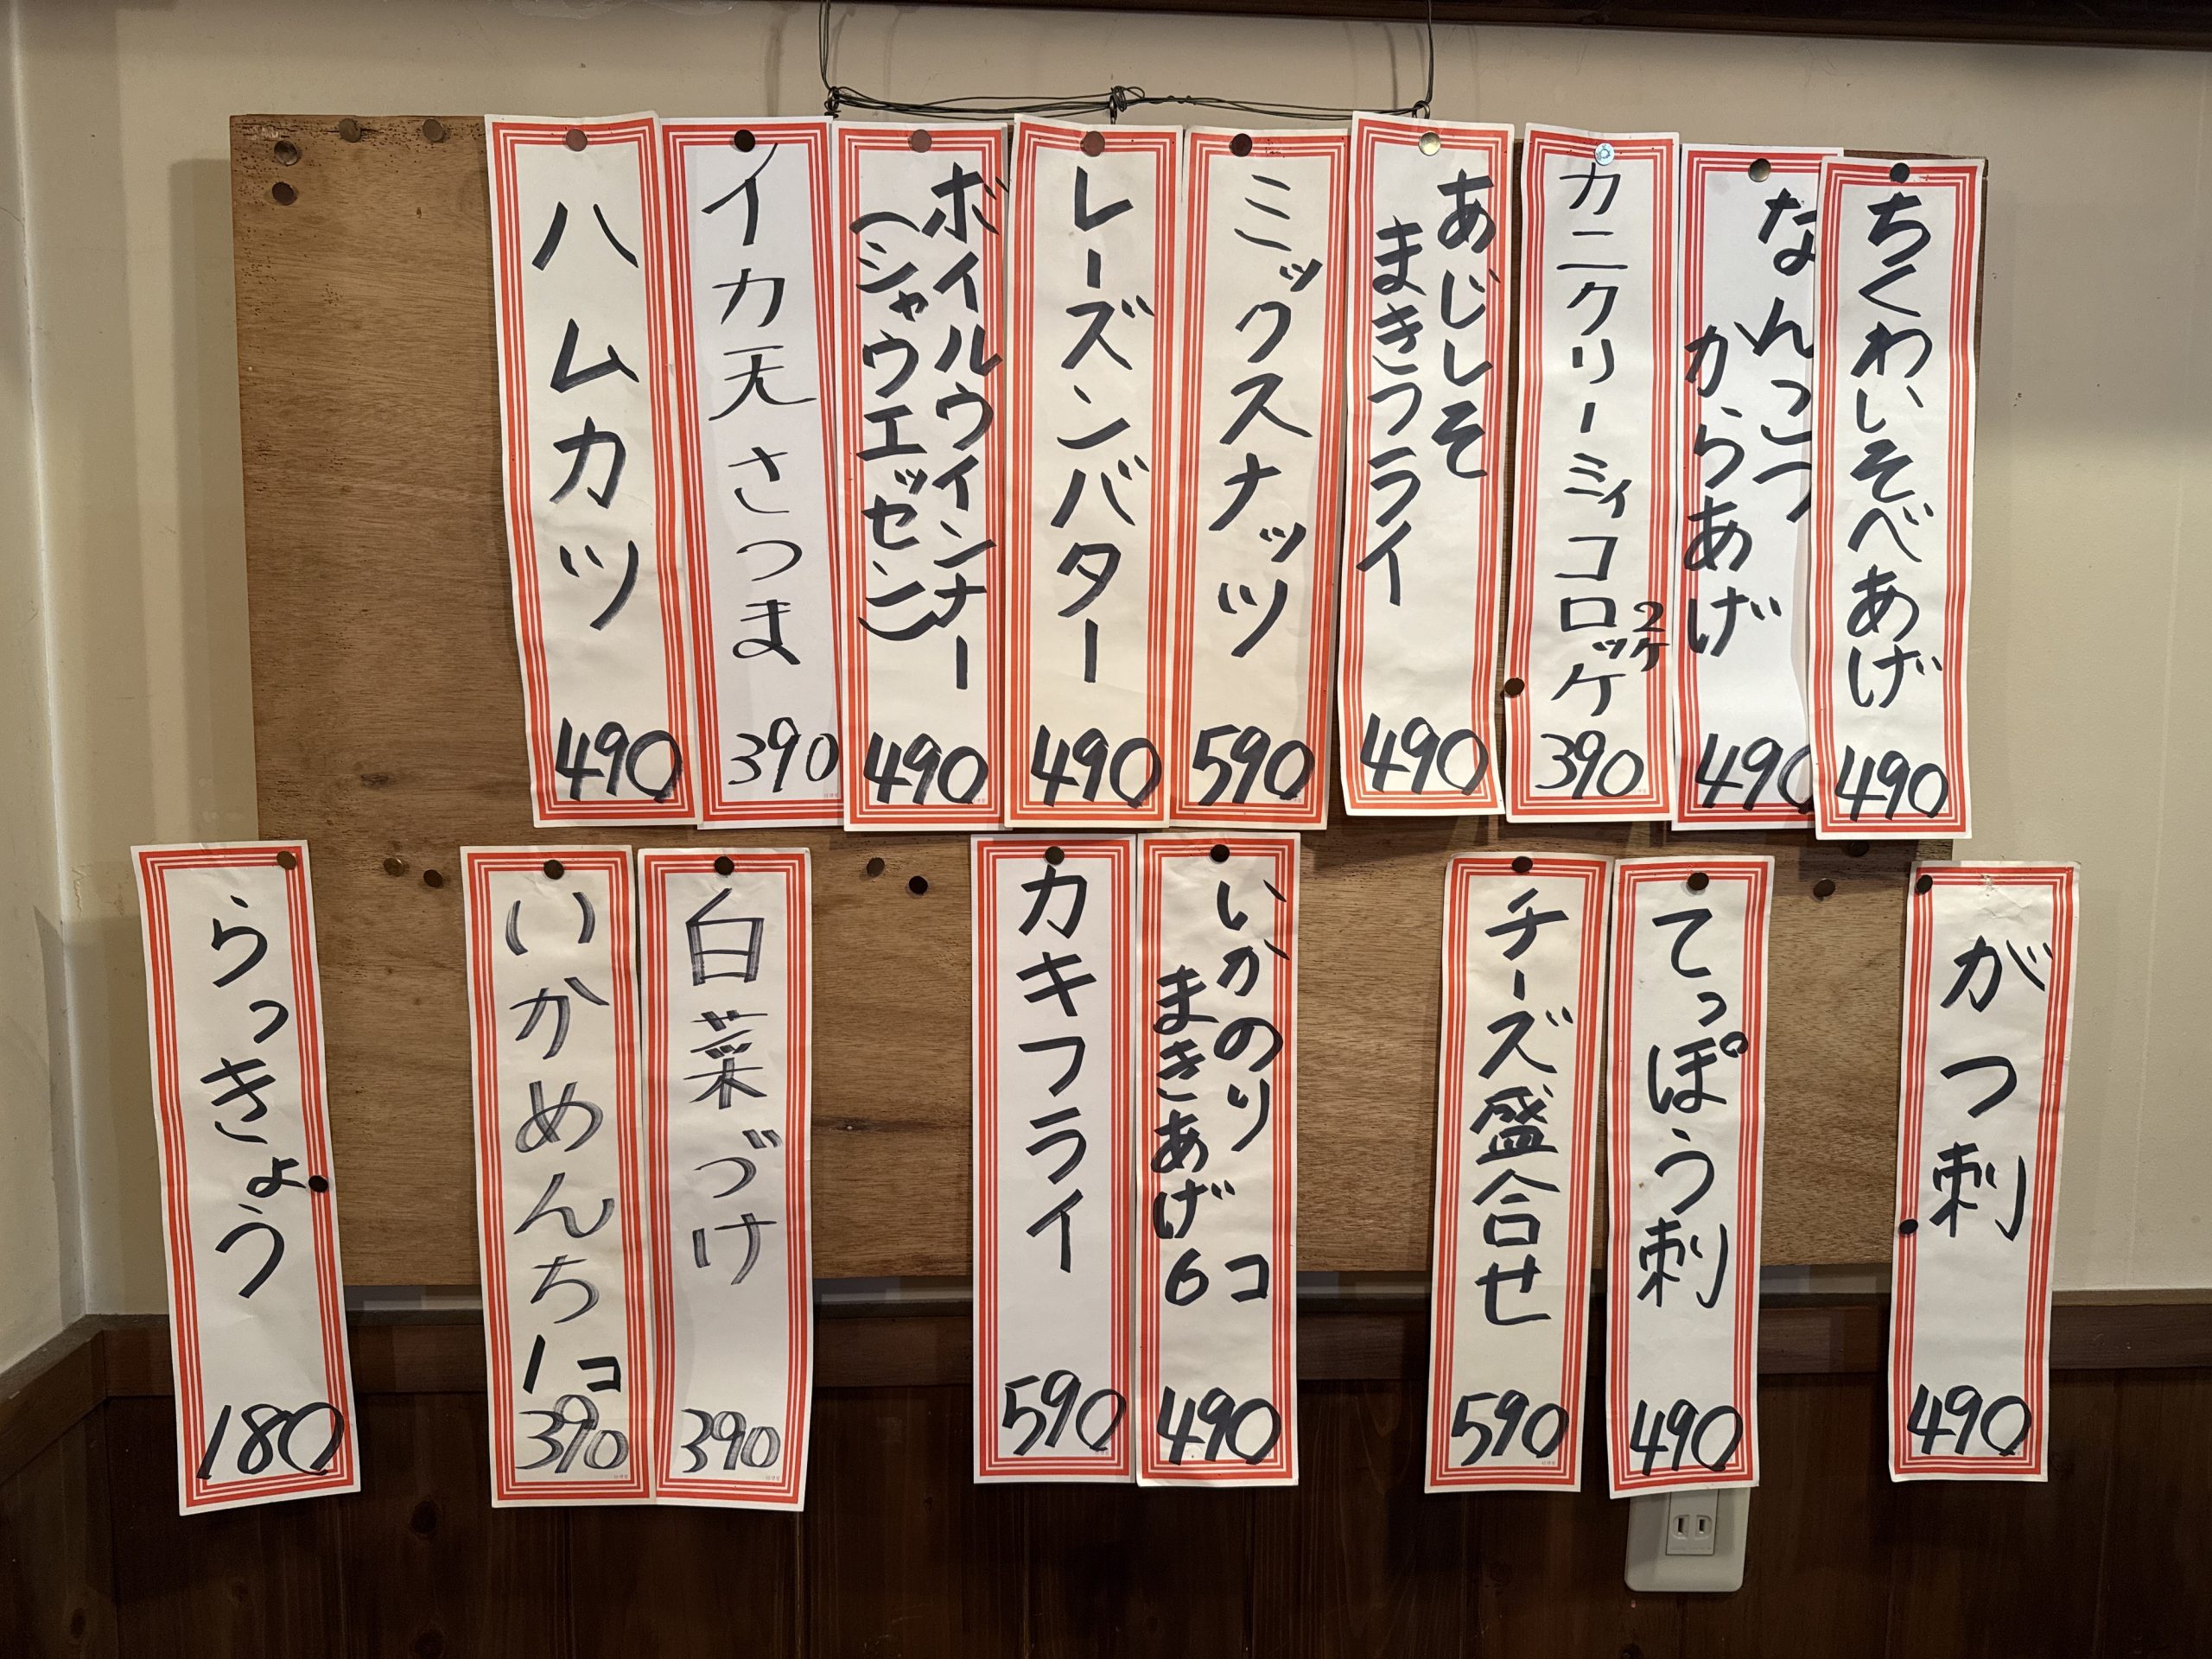 ちくわいそべあげ
490
なんこつ
からあげ
490
カニクリーミィコロッケ
2ケ
390
あじしそ
まきフライ
490
ミックスナッツ
590
レーズンバター
490
ボイルウインナー
(シャウエッセン)
490
イカ天さつま
390
ハムカツ
490
がつ刺
490
てっぽう刺
490
チーズ盛合せ
590
いかのり
まきあげ6コ
490
カキフライ
590
白菜づけ
390
いかめんち
1コ
390
らっきょう
180